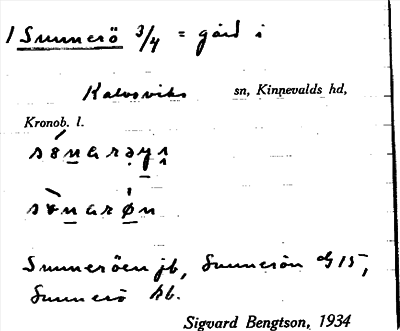 1 Sunnerö 3/4 = gård i
Kalvsviks sn, Kinnevalds hd,
Kronob. l.
Sunneröen jb, Sunnerön G 15,
Sunnerö kb.
Sigvard Bengtson, 1934